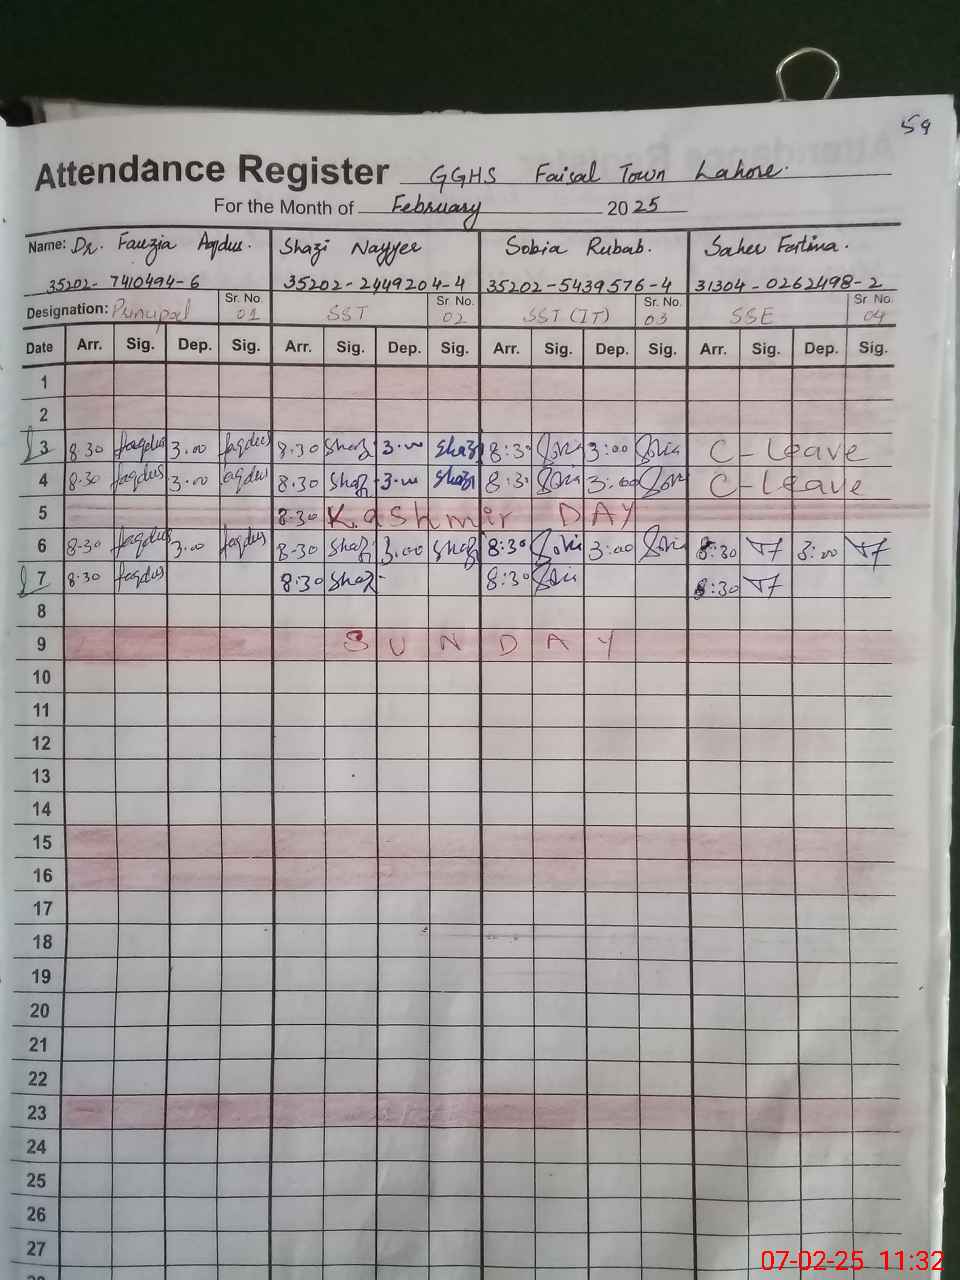 59
Attendance Register GGHS Faisal Town Lahore.
For the Month of February 2025
Name: Dr. Fauzia Aqdus. Shazi Nayyer Sobia Rubab. Saher Fatima.
35202-7410494-6 35202-2449204-4 35202-5439576-4 31304-0262498-2
Designation: Principal Sr. No. 01 SST Sr. No. 02 SST (IT) Sr. No. 03 SSE Sr. No. 04
Date Arr. Sig. Dep. Sig. Arr. Sig. Dep. Sig. Arr. Sig. Dep. Sig. Arr. Sig. Dep. Sig.
1
2
3 8.30 faqdus 3.00 faqdus 8.30 Shaz 3.00 Shaz 8:30 Sobia 3:00 Sobia C-Leave
4 8.30 faqdus 3.00 aqdus 8.30 Shaz 3.00 Shaz 8:30 Sobia 3:00 Sobia C-Leave
5 8.30 Kashmir DAY
6 8.30 faqdus 3.00 faqdus 8.30 Shaz 3.00 Shaz 8:30 Sobia 3:00 Sobia 8:30 3:00
7 8.30 faqdus 8:30 Shaz 8:30 Sobia 8:30
8
9 SUNDAY
10
11
12
13
14
15
16
17
18
19
20
21
22
23
24
25
26
27
07-02-25 11:32